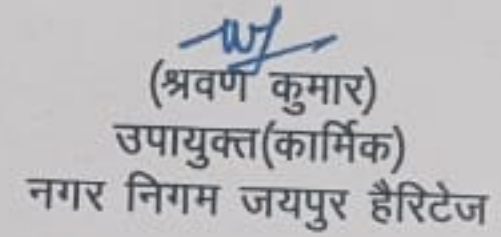 (श्रवण कुमार)
उपायुक्त(कार्मिक)
नगर निगम जयपुर हैरिटेज